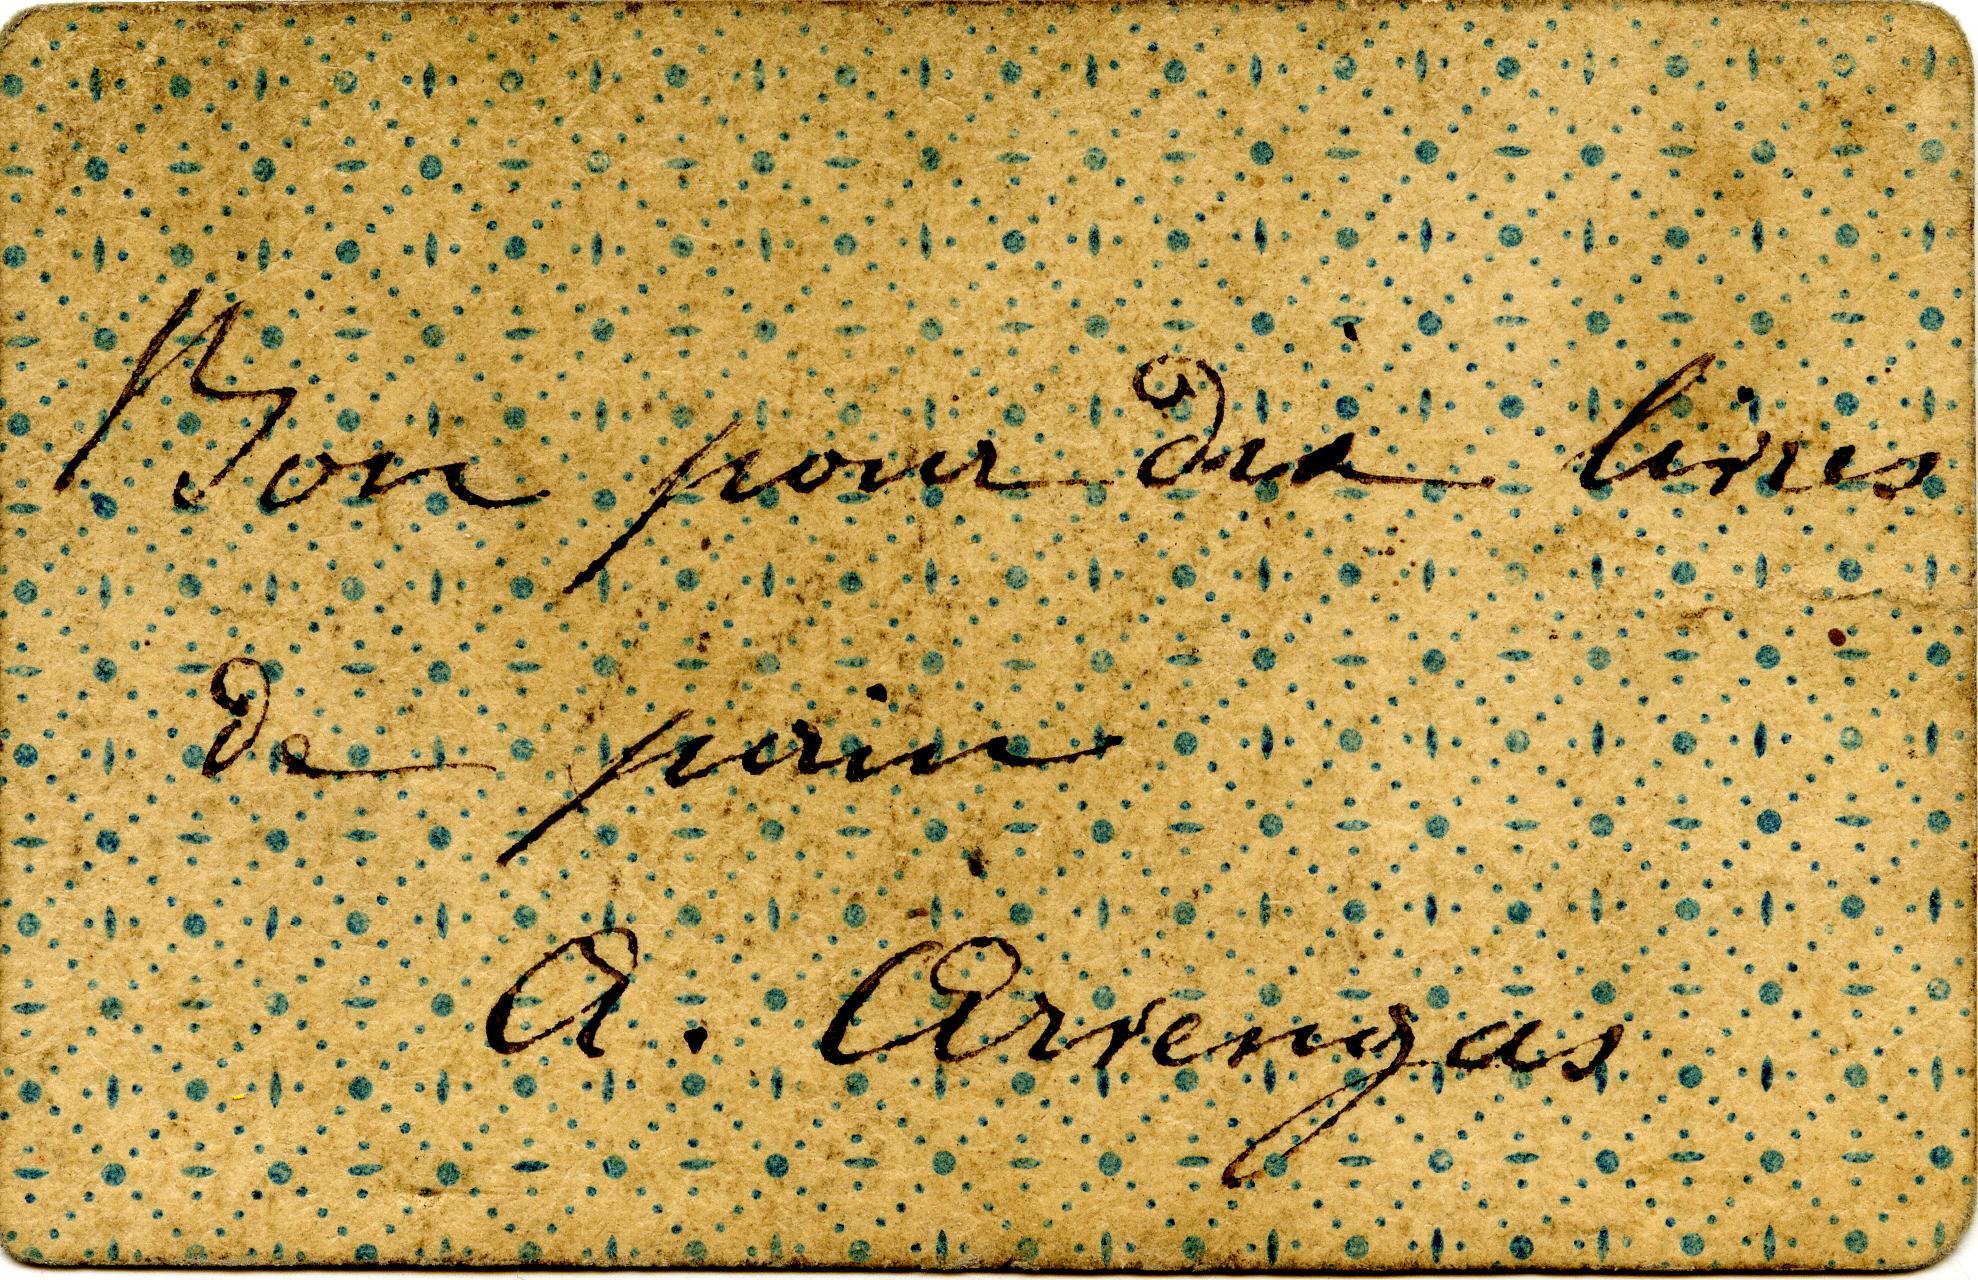 Bon pour dix livres
de pain
A. Arrengas